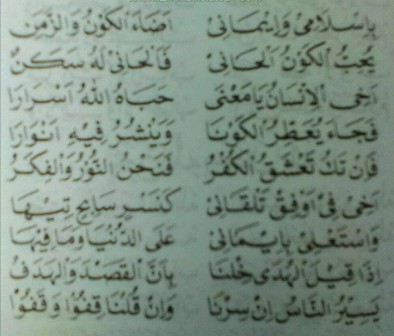 بِإِسْلَامِى وَإِيْمَانِى اَضَاءَ الكَوْنُ وَالزَّمَنُ
يُحِبُّ الكَوْنُ اَلحَانِىْ فَأَلْحَانِىْ لَهُ سَكَنٌ
اَخِى اْلاِنْسَانُ يَا مَعْنَى حَبَاهُ اللهُ اَسْرَارَا
فَجَاءَ يُعَطِّرُ الكَوْنَا وَيَنْشُرُ فِيْهِ اَنْوَارَا
فَإِنْ تَكُ تَعْشَقُ الْكُفْرَ فَنَحْنُ النُّوْرُ وَالْفِكَرُ
اَخِى فِى اْلاُفْقِ تَلْقَانِىْ كَنَسْرٍ سَابِحٍ تِيْهَا
وَاسْتَعْلِىْ بِإِيْمَانِىْ عَلَى الدُّنْيَا وَمَا فِيْهَا
اِذَا قِيْلَ الْهُدَى خِلْنَا بِاَنَّ الْقَصْدَ وَالْهَدَفُ
يَسِيْرُ النَّاسُ اِنْ سِرْنَا وَاِنْ قُلْنَا قِفُوْا وَقَفُوْا